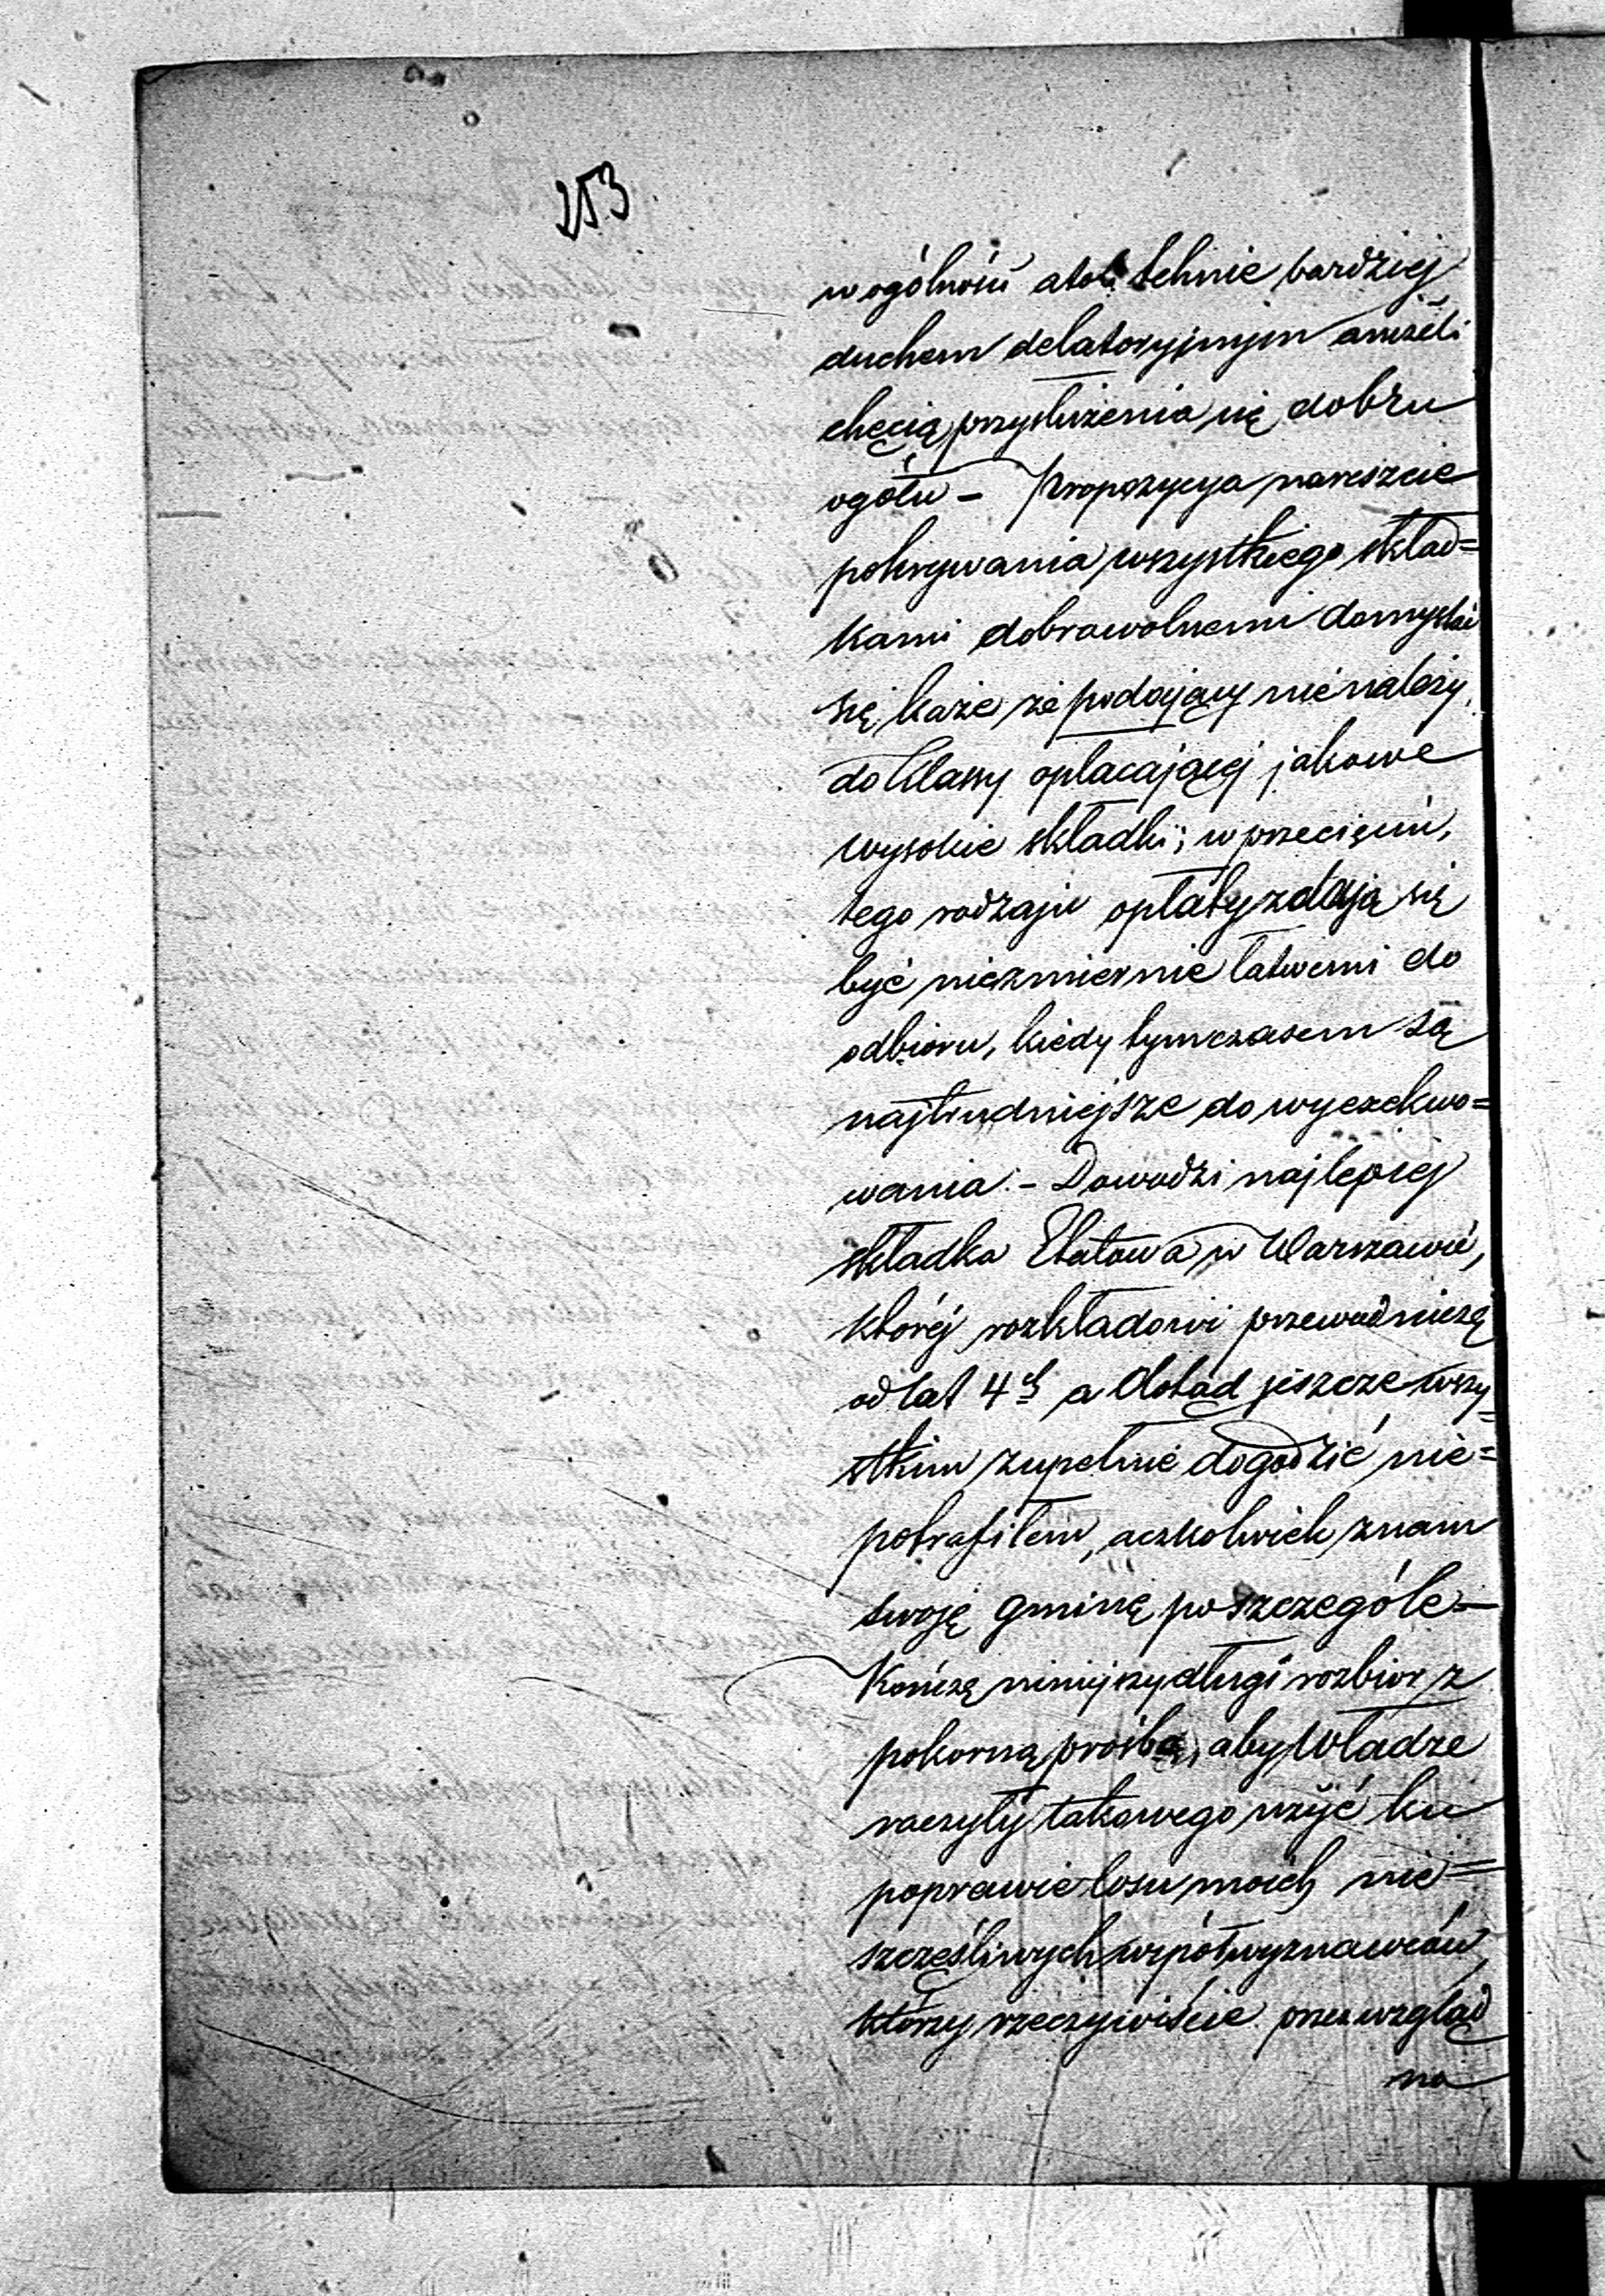 253
w ogólności atoli tchnie bardziej
duchem delatoryjnym aniżeli
chęcią przysłużenia się dobru
ogółu – Propozycya nareszcie
pokrywania wszystkiego skład=
kami dobrowolnemi domyślać
się każe że podający nie należy
do klassy opłacającej jakowe
wysokie składki; w przecięciu,
tego rodzaju opłaty zdają się
być niezmiernie łatwemi do
odbioru, kiedy tymczasem są
najtrudniejsze do wyexekwo=
wania. – Dowodzi najlepiej
składka Etatowa w Warszawie,
której rozkładowi przewodniczę
od lat 4ch a dotąd jeszcze wszy=
stkim zupełnie dogodzić nie=
potrafiłem, aczkolwiek znam
swoję gminę poszczególe –
Kończę niniejszy długi rozbior z
pokorną prośbą, aby Władze
raczyły takowego użyć ku
poprawie losu moich nie=
szczęśliwych współwyznawców,
którzy rzeczywiście przez wzgląd
na